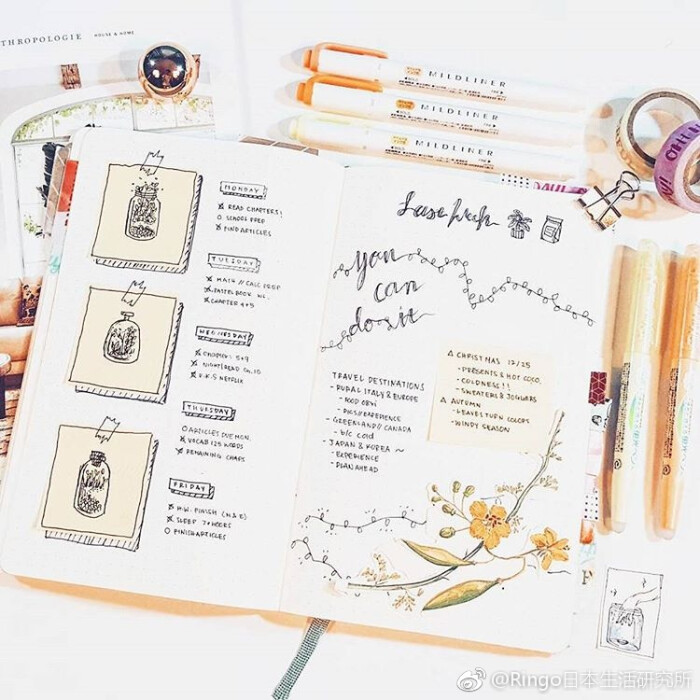 THROPOLOGIE HOUSE & HOME
MILDLINER
MILDLINER
MILDLINER
MONDAY
READ CHAPTERS!
SCHOOL PREP
FIND ARTICLES
TUESDAY
MATH // CALC PREP
CHAPTER 4+5
WEDNESDAY
CHAPTER 5+9
SIGHTREAD CH. 10
NETFLIX
THURSDAY
ARTICLES DUE MON.
VOCAB 125 WORDS
REMAINING CHAPS
FRIDAY
H.W. FINISH (M & E)
SLEEP 7+ HOURS
FINISH ARTICLES
you
can
do it
TRAVEL DESTINATIONS
- RURAL ITALY & EUROPE
- FOOD OBVI
- PHOTO/EXPERIENCE
- GREENLAND // CANADA
- b/c cold
- JAPAN & KOREA ~
- EXPERIENCE
- PLAN AHEAD
CHRISTMAS 12/25
- PRESENTS & HOT COCO.
- COLDNESS!!
- SWEATERS & JOGGERS
AUTUMN
- LEAVES TURN COLORS
- WINDY SEASON
@Ringo日本生活研究所